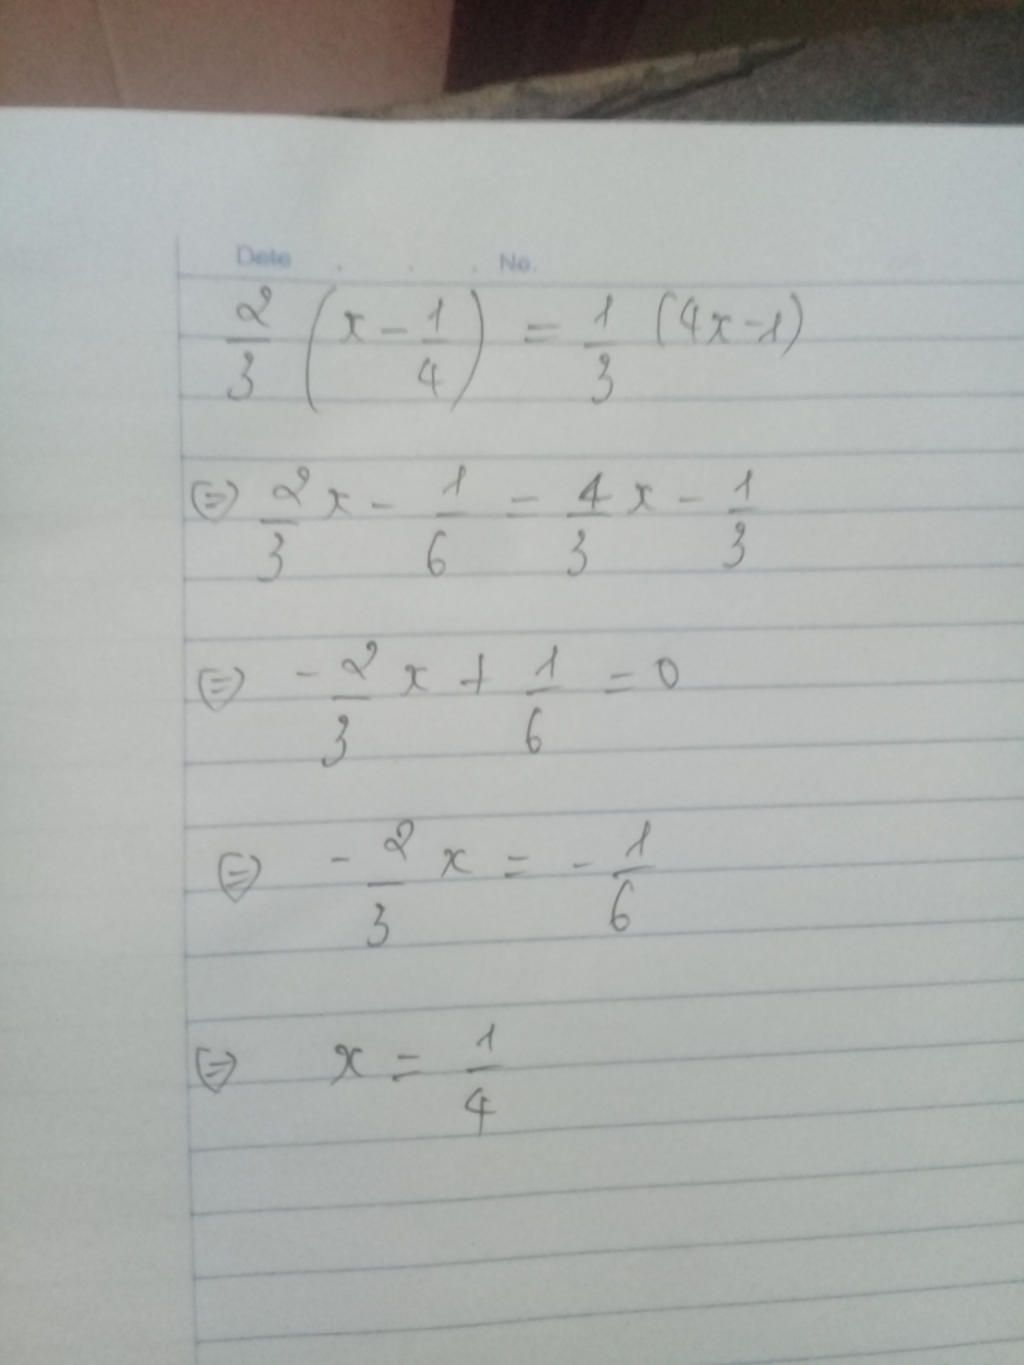 Date . . . No.
2/3 (x - 1/4) = 1/3 (4x-1)
⇔ 2/3 x - 1/6 = 4/3 x - 1/3
⇔ -2/3 x + 1/6 = 0
⇔ -2/3 x = -1/6
⇔ x = 1/4